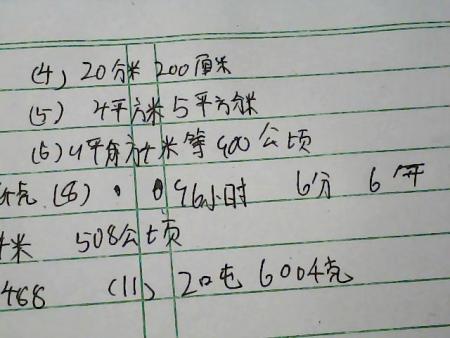 (4) 20分米 200厘米
(5) 4平方米5平方分米
(6) 4平方千米等400公顷
克 (8) 96小时 6分 6年
米 508公顷
468 (11) 20吨 6004克